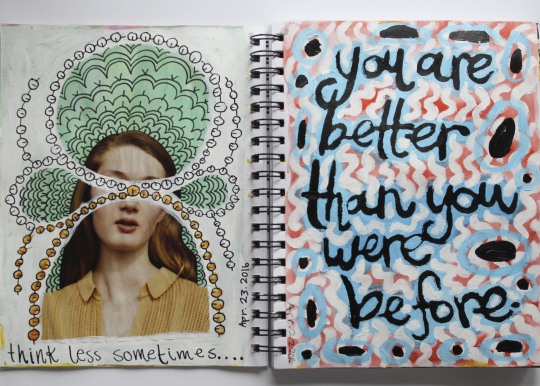 think less sometimes....
Apr. 23. 2016
you are
better
than you
were
before.